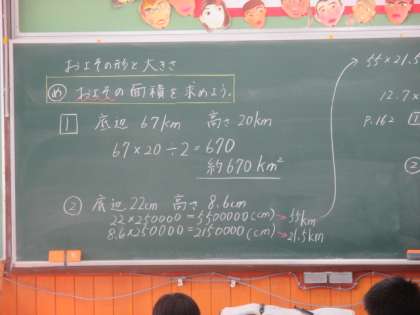 およその形と大きさ
め およその面積を求めよう。
1 底辺 67km 高さ 20km
67×20÷2=670
約670km²
② 底辺 22cm 高さ 8.6cm
22×250000=5500000(cm)→55km
8.6×250000=2150000(cm)→21.5km
55×21.5
12.7×
P.162 1
②